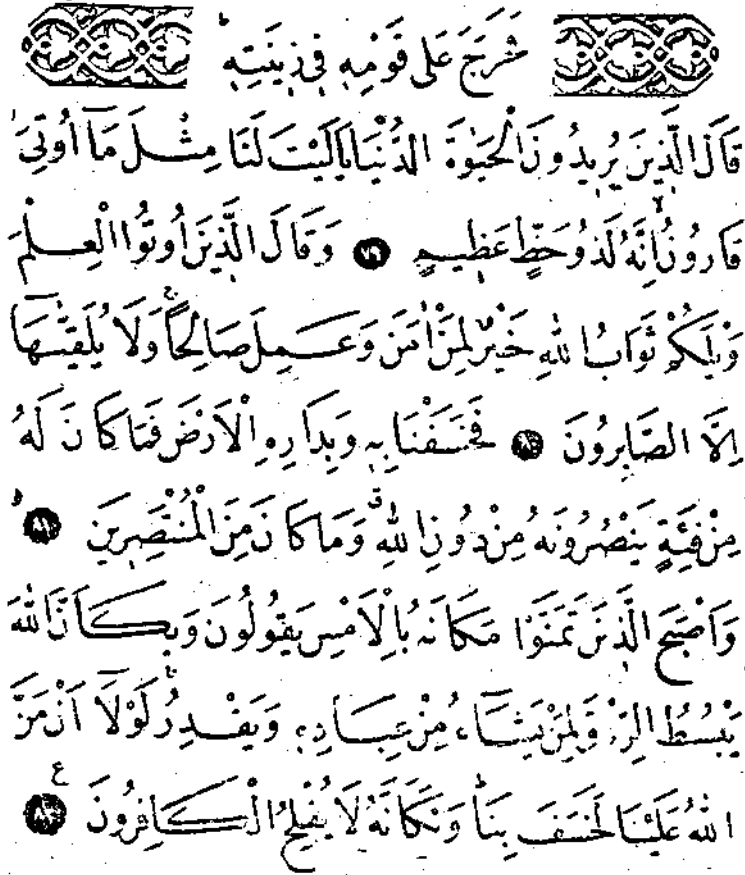 فَخَرَجَ عَلٰى قَوْمِهٖ فٖي زٖينَتِهٖ
قَالَ الَّذٖينَ يُرٖيدُونَ الْحَيٰوةَ الدُّنْيَا يَالَيْتَ لَنَا مِثْلَ مَٓا اُو۫تِيَ
قَارُونُ اِنَّهُ لَذُو حَظٍّ عَظٖيمٍ ﴿٧٩﴾ وَقَالَ الَّذٖينَ اُو۫تُوا الْعِلْمَ
وَيْلَكُمْ ثَوَابُ اللّٰهِ خَيْرٌ لِمَنْ اٰمَنَ وَعَمِلَ صَالِحًا وَلَا يُلَقّٰيهَٓا
اِلَّا الصَّابِرُونَ ﴿٨٠﴾ فَخَسَفْنَا بِهٖ وَبِدَارِهِ الْاَرْضَ فَمَا كَانَ لَهُ
مِنْ فِئَةٍ يَنْصُرُونَهُ مِنْ دُونِ اللّٰهِ وَمَا كَانَ مِنَ الْمُنْتَصِرٖينَ ﴿٨١﴾
وَاَصْبَحَ الَّذٖينَ تَمَنَّوْا مَكَانَهُ بِالْاَمْسِ يَقُولُونَ وَيْكَاَنَّ اللّٰهَ
يَبْسُطُ الرِّزْقَ لِمَنْ يَشَٓاءُ مِنْ عِبَادِهٖ وَيَقْدِرُ لَوْلَٓا اَنْ مَنَّ
اللّٰهُ عَلَيْنَا لَخَسَفَ بِنَا وَيْكَاَنَّهُ لَا يُفْلِحُ الْكَافِرُونَ ﴿٨٢﴾ ع